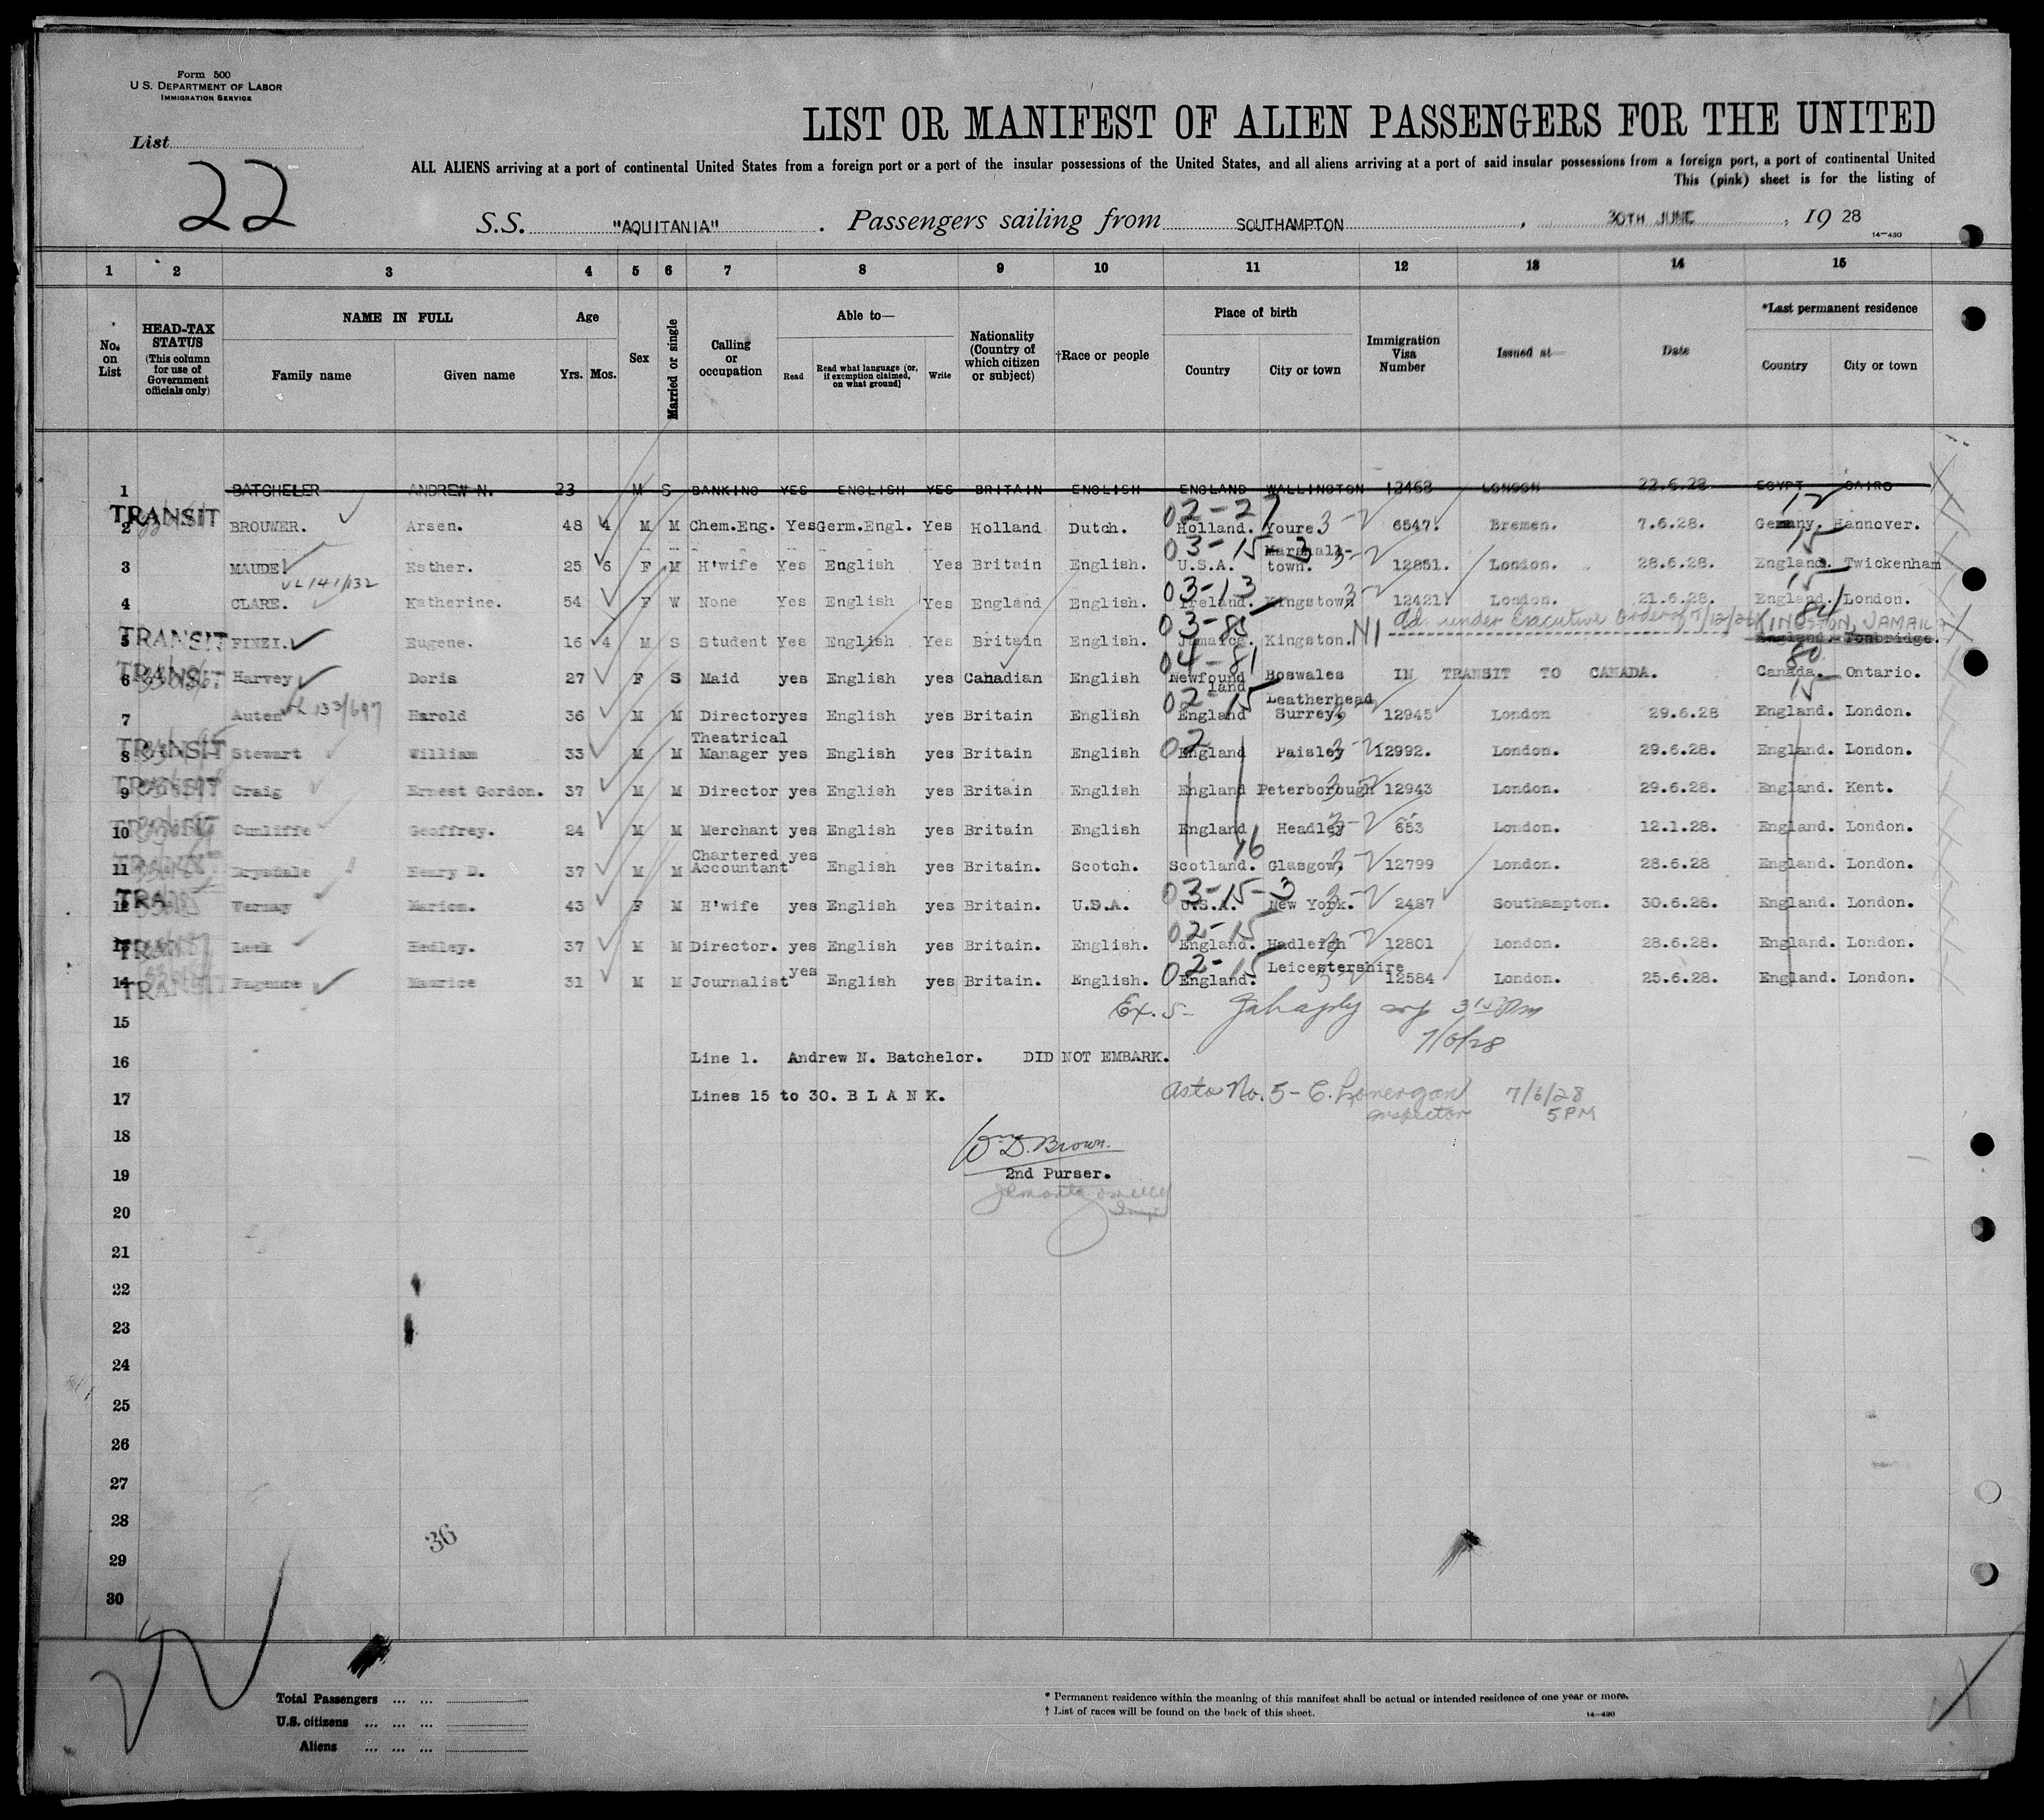 Form 500
U. S. DEPARTMENT OF LABOR
IMMIGRATION SERVICE
List
22
LIST OR MANIFEST OF ALIEN PASSENGERS FOR THE UNITED
ALL ALIENS arriving at a port of continental United States from a foreign port or a port of the insular possessions of the United States, and all aliens arriving at a port of said insular possessions from a foreign port, a port of continental United
This (pink) sheet is for the listing of
S.S. "AQUITANIA". Passengers sailing from SOUTHAMPTON, 30TH JUNE, 19 28
14—430
1 2 3 4 5 6 7 8 9 10 11 12 13 14 15
No. on List
HEAD-TAX STATUS (This column for use of Government officials only)
NAME IN FULL
Family name Given name
Age
Yrs. Mos.
Sex
Married or single
Calling or occupation
Able to—
Read Read what language (or, if exemption claimed, on what ground) Write
Nationality (Country of which citizen or subject)
†Race or people
Place of birth
Country City or town
Immigration Visa Number
Issued at
Date
*Last permanent residence
Country City or town
1 BATCHELER ANDREW N. 23 M S BANKING YES ENGLISH YES BRITAIN ENGLISH ENGLAND WALLINGTON 12468 LONDON 22.6.28 EGYPT CAIRO
02-27 12
TRANSIT
2 BROUWER. Arsen. 48 4 M M Chem.Eng. Yes Germ.Engl. Yes Holland Dutch. Holland. Youre 3-2 6547. Bremen. 7.6.28. Gemany. Hannover.
03-15 3 15
3 MAUDE Esther. 25 6 F M H'wife Yes English Yes Britain English. U.S.A. Marshall-town. 3-2 12851. London. 28.6.28. England. Twickenham
VL 141/132
03-13 15
4 CLARE. Katherine. 54 F W None Yes English Yes England English. Ireland. Kingstown 3-2 12421. London. 21.6.28. England. London.
03-85 Ad. under Executive Order of 7/12/26 KINGSTON, JAMAICA
TRANSIT
5 FINZI. Eugene. 16 4 M S Student Yes English Yes Britain English. Jamaica. Kingston. N1 England. Tonbridge.
04-81 80
TRANSIT
6 Harvey Doris 27 F S Maid yes English yes Canadian English Newfound land Boswales IN TRANSIT TO CANADA. Canada. Ontario.
02-15 15
VL 133/697
7 Auten Harold 36 M M Director yes English yes Britain English England Leatherhead Surrey. 12945 London 29.6.28 England. London.
02
TRANSIT
8 Stewart William 33 M M Theatrical Manager yes English yes Britain English England Paisley 3-2 12992. London. 29.6.28. England. London.
TRANSIT
9 Craig Ernest Gordon. 37 M M Director yes English yes Britain English England Peterborough 3-2 12943 London. 29.6.28. England. Kent.
TRANSIT
10 Cunliffe Geoffrey. 24 M M Merchant yes English yes Britain English England Headley 3-2 653 London. 12.1.28. England. London.
16
TRANSIT
11 Drysdale Henry D. 37 M M Chartered Accountant yes English yes Britain. Scotch. Scotland. Glasgow. 3-2 12799 London. 28.6.28 England. London.
03-15-3
TRA
12 Vernay Marion. 43 F M H'wife yes English yes Britain. U.S.A. U.S.A. New York. 3-2 2487 Southampton. 30.6.28. England. London.
02-15
13 Leek Hedley. 37 M M Director. yes English yes Britain. English. England. Hadleigh 3-2 12801 London. 28.6.28. England. London.
02-15
TRANSIT
14 Fagence Maurice 31 M M Journalist yes English yes Britain. English. England. Leicestershire 3-2 12584 London. 25.6.28. England. London.
15 Ex. 5- 3 15 Pm
7/6/28
16 Line 1. Andrew N. Batchelor. DID NOT EMBARK.
17 Lines 15 to 30. B L A N K. as to No. 5 - C. Lonergan 7/6/28
inspector 5 PM
18 Wm D. Brown.
19 2nd Purser.
20
21
22
23
24
25
26
27
28
36
29
30
Total Passengers ... ...
U.S. citizens ... ... ...
Aliens ... ... ...
* Permanent residence within the meaning of this manifest shall be actual or intended residence of one year or more.
† List of races will be found on the back of this sheet.
14—430